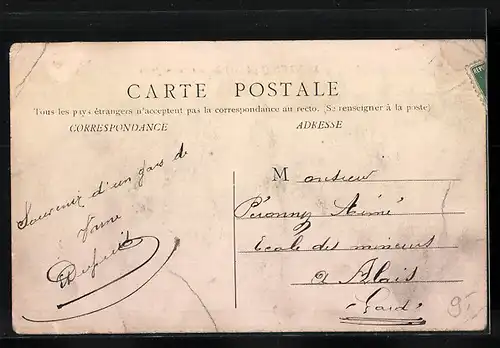 CARTE POSTALE
Tous les pays étrangers n'acceptent pas la correspondance au recto. (Se renseigner à la poste)
CORRESPONDANCE
ADRESSE
Souvenir d'un gars de
Monsieur
Aimé
Ecole des mineurs
a Alais
Gard
9-